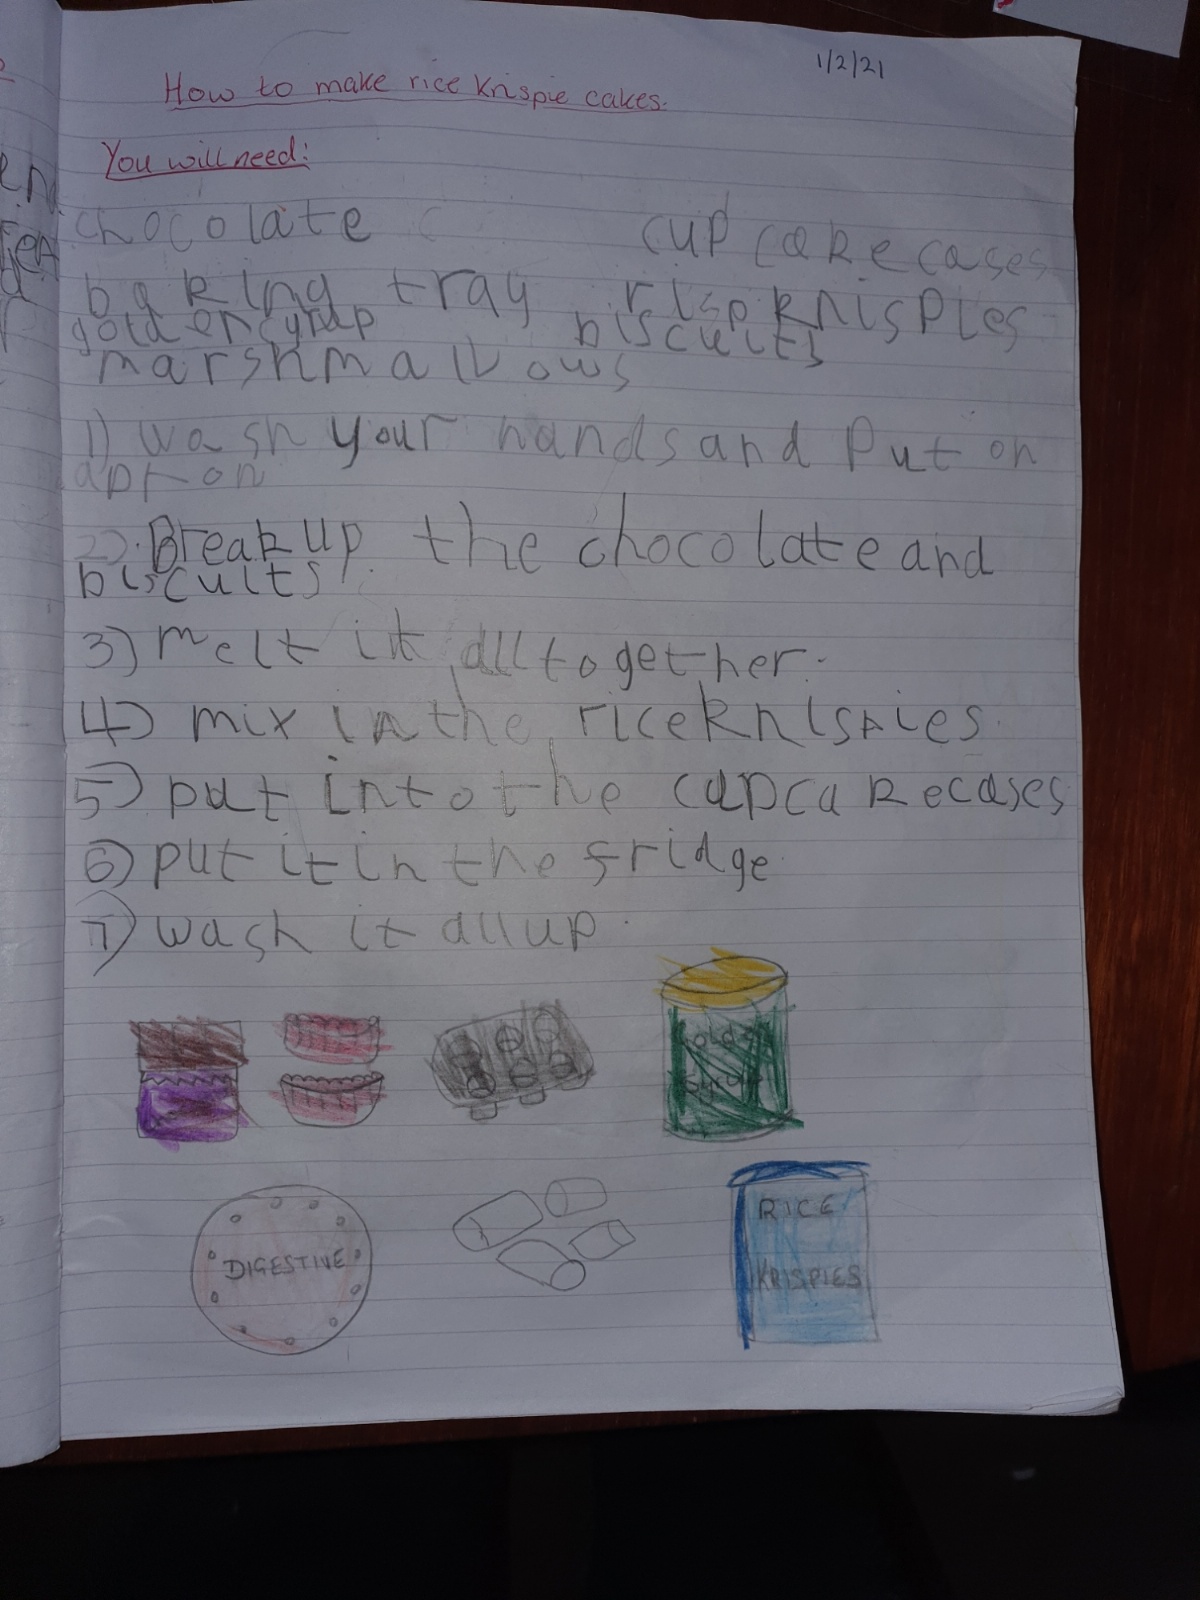 1/2/21
How to make rice Krispie cakes.
You will need:
chocolate cup cake cases
baking tray risp knispies
golden syrup biscuits
marshmallows
1) wash your hands and Put on
apron
2) Break up the chocolate and
biscuits
3) melt it all together.
4) mix in the rice knispies.
5) put into the cupcake cases
6) put it in the fridge
7) wash it all up.
DIGESTIVE
RICE
KRISPIES